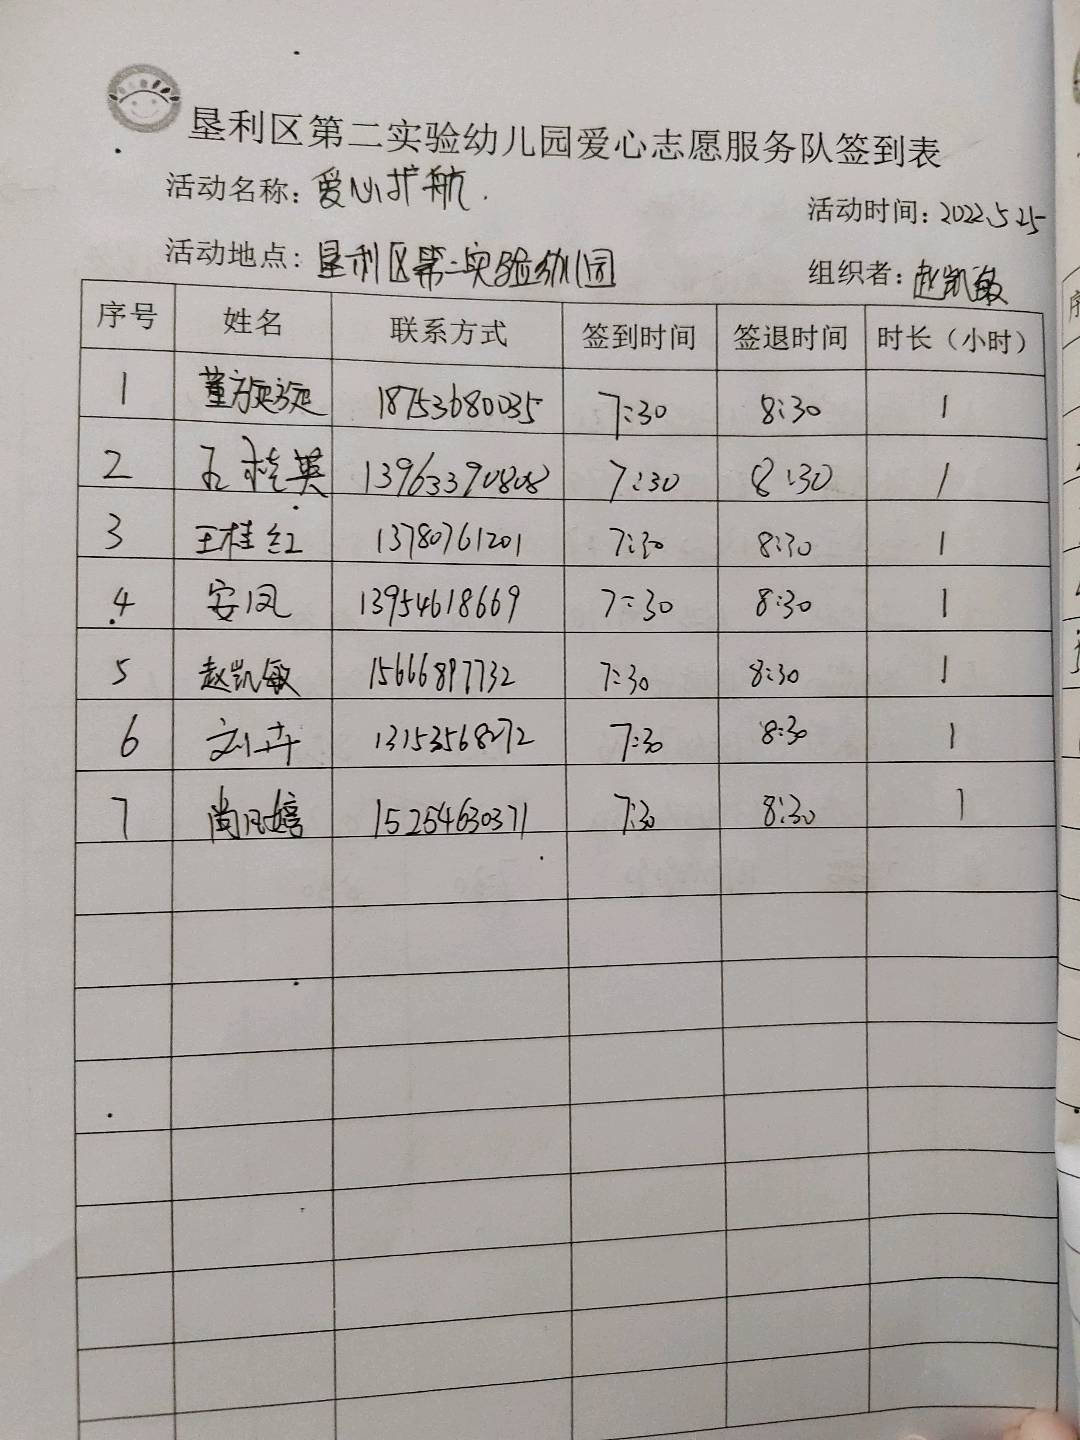 垦利区第二实验幼儿园爱心志愿服务队签到表
活动名称：爱心护航.
活动时间：2022.5.25
活动地点：垦利区第二实验幼儿园
组织者：赵凯敏
序号 姓名 联系方式 签到时间 签退时间 时长（小时）
1 董旋旋 18753680035 7:30 8:30 1
2 王桂英 13963390808 7:30 8:30 1
3 王桂红 13780761201 7:30 8:30 1
4 安凤 13954618669 7:30 8:30 1
5 赵凯敏 15666897732 7:30 8:30 1
6 刘卉 13153568272 7:30 8:30 1
7 尚 15254630371 7:30 8:30 1